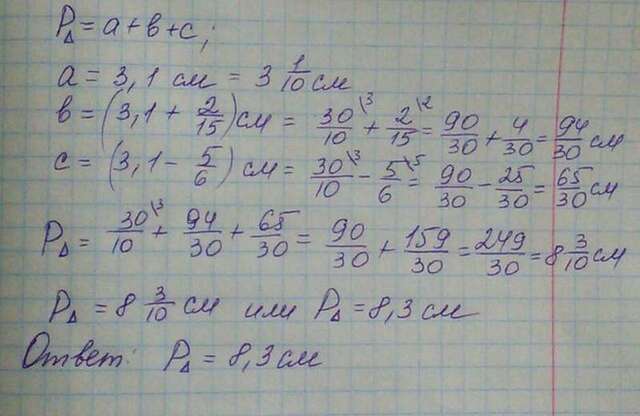 P△ = a + в + c;
a = 3,1 см = 3 1/10 см
в = (3,1 + 2/15) см = 30/10 \3 + 2/15 \2 = 90/30 + 4/30 = 94/30 см
c = (3,1 − 5/6) см = 30/10 \3 − 5/6 \5 = 90/30 − 25/30 = 65/30 см
P△ = 30/10 \3 + 94/30 + 65/30 = 90/30 + 159/30 = 249/30 = 8 3/10 см
P△ = 8 3/10 см или P△ = 8,3 см
Ответ: P△ = 8,3 см